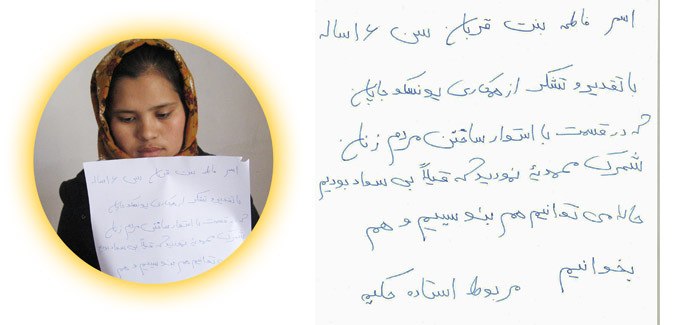 اسم فاطمه بنت قربان سن ۱۶ ساله
با تقدیر و تشکر از همکاری یونسکو جاپان
که در قسمت با استوار ساختن مردم زنان
شهرک نمودید که قبلاً بی سواد بودیم
حالا می توانیم هم بنو سیم و هم
بخوانیم
مربوط استاده حکیم